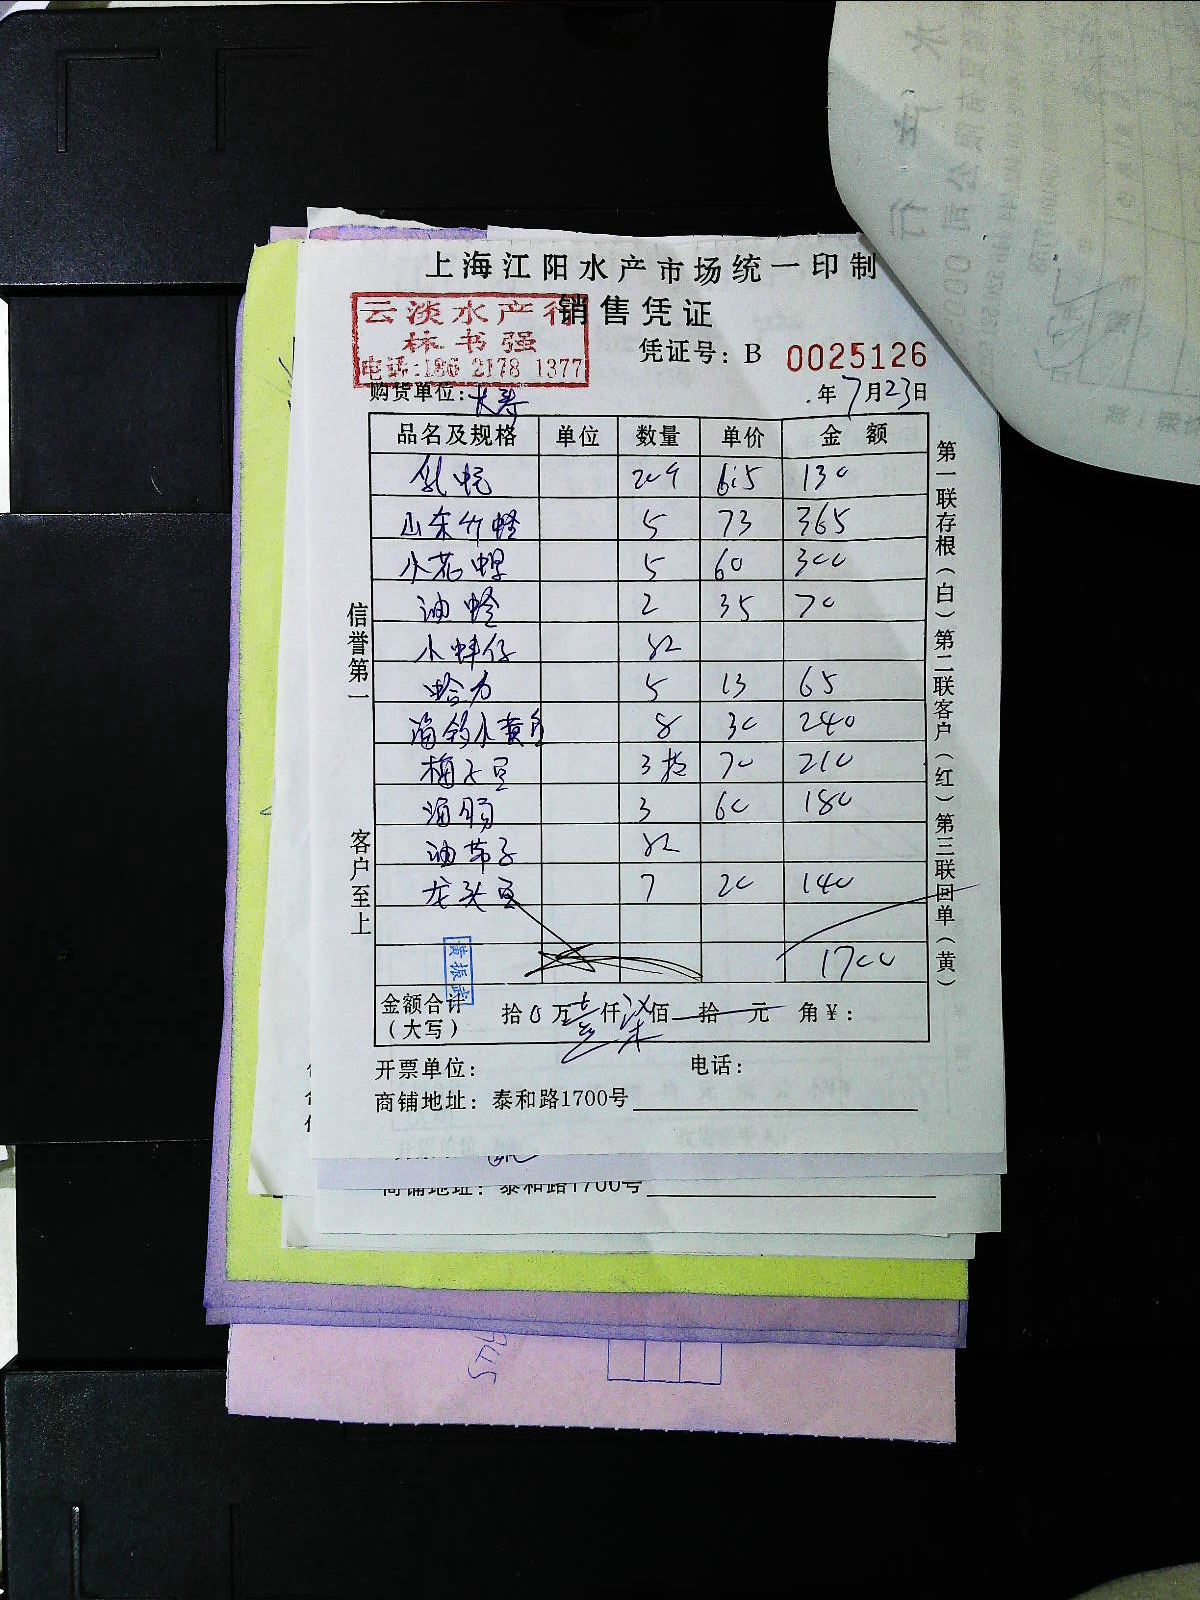 上海江阳水产市场统一印制
销售凭证
云淡水产行
林书强
电话:186 2178 1377
凭证号：B 0025126
购货单位：大寿
年7月23日
品名及规格 单位 数量 单价 金额
6.5 130
山东竹蛏 5 73 365
小花螺 5 60 300
油蛤 2 35 70
小蚌仔
蛤力 5 13 65
海钓小黄鱼 8 30 240
梅子豆 3 70 210
海肠 3 60 180
油带子
龙头豆 7 20 140
1700
黄振武
金额合计（大写） 拾0万壹仟柒佰拾元角￥：
开票单位： 电话：
商铺地址：泰和路1700号
信誉第一 客户至上
第一联存根（白）第二联客户（红）第三联回单（黄）
商铺地址：泰和路1700号